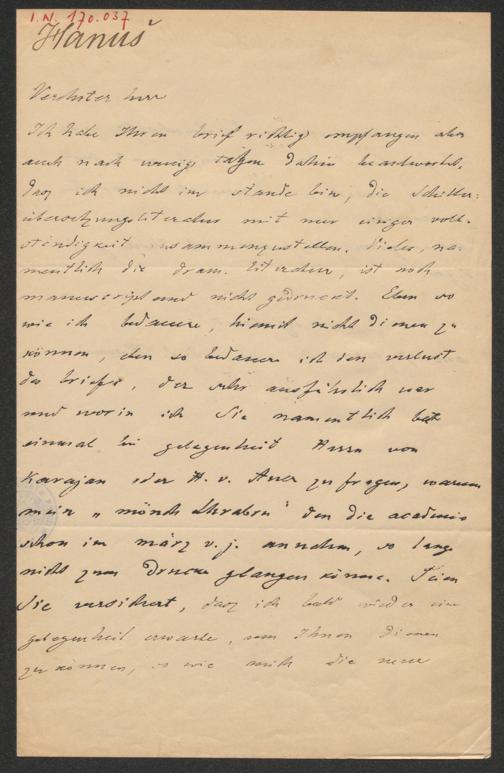 I.N. 170.037
Hanuš
Verehrter herr
Ich habe Ihren brief richtig empfangen aber
auch nach wenig tagen dahin beantwortet,
daz ich nicht im stande bin, die Schiller-
übersetzungsliteratur mit nur einiger voll-
ständigkeit zusammenzustellen. Vieles, na-
mentlich die dram. literatur, ist noch
manuscript und nicht gedruckt. Eben so
wie ich bedauere, hiemit nicht dienen zu
können, eben so bedauere ich den verlust
des briefes, der sehr ausführlich war
und worin ich Sie namentlich bat
einmal bei gelegenheit Herrn von
Karajan oder H. v. Auer zu fragen, warum
mein „mönch Hrabru" den die academie
schon im märz v. j. annahm, so lange
nicht zum Drucke glangen könne. Seien
Sie versichert, daz ich bald wieder eine
gelegenheit erwarte, um Ihnen dienen
zu können, so wie mich die neue